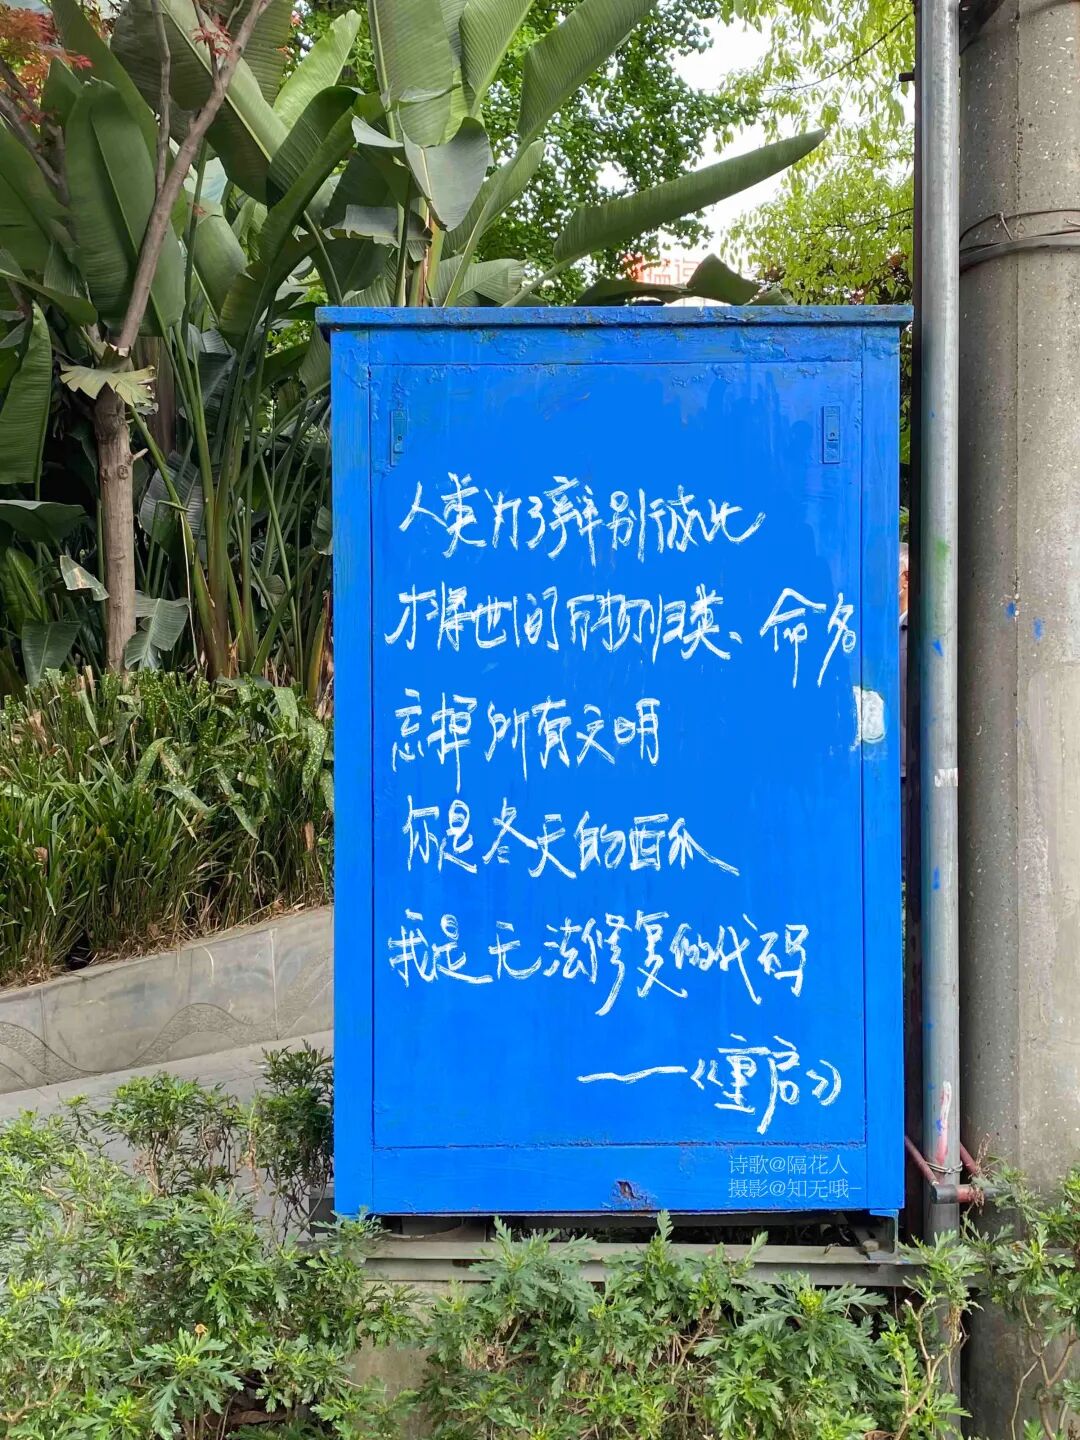 人类为了辨别彼此
才将世间万物归类、命名
忘掉所有文明
你是冬天的西瓜
我是无法修复的代码
——《重启》
诗歌@隔花人
摄影@知无哦-